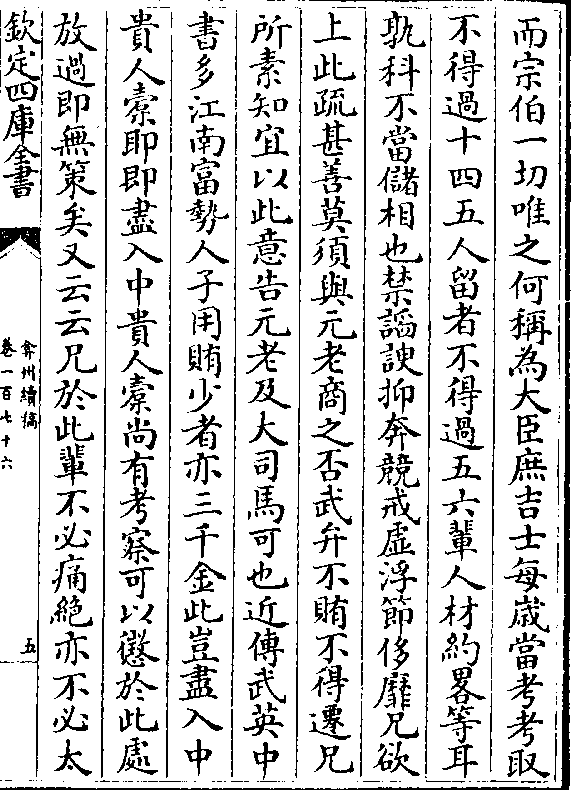 而宗伯一切唯之何稱為大臣庶吉士每歳當考考取
不得過十四五人留者不得過五六輩人材約畧等耳
孰科不當儲相也禁謟諛抑奔競戒虚浮節侈靡兄欲
上此疏甚善莫須與元老商之否武弁不賄不得遷兄
所素知宜以此意告元老及大司馬可也近傳武英中
書多江南富勢人子用賄少者亦三千金此豈盡入中
貴人槖即即盡入中貴人槖尚有考察可以懲於此處
放過即無策矣又云云兄於此輩不必痛絕亦不必太
欽定四庫全書
弇州續稿
卷一百七十六
五